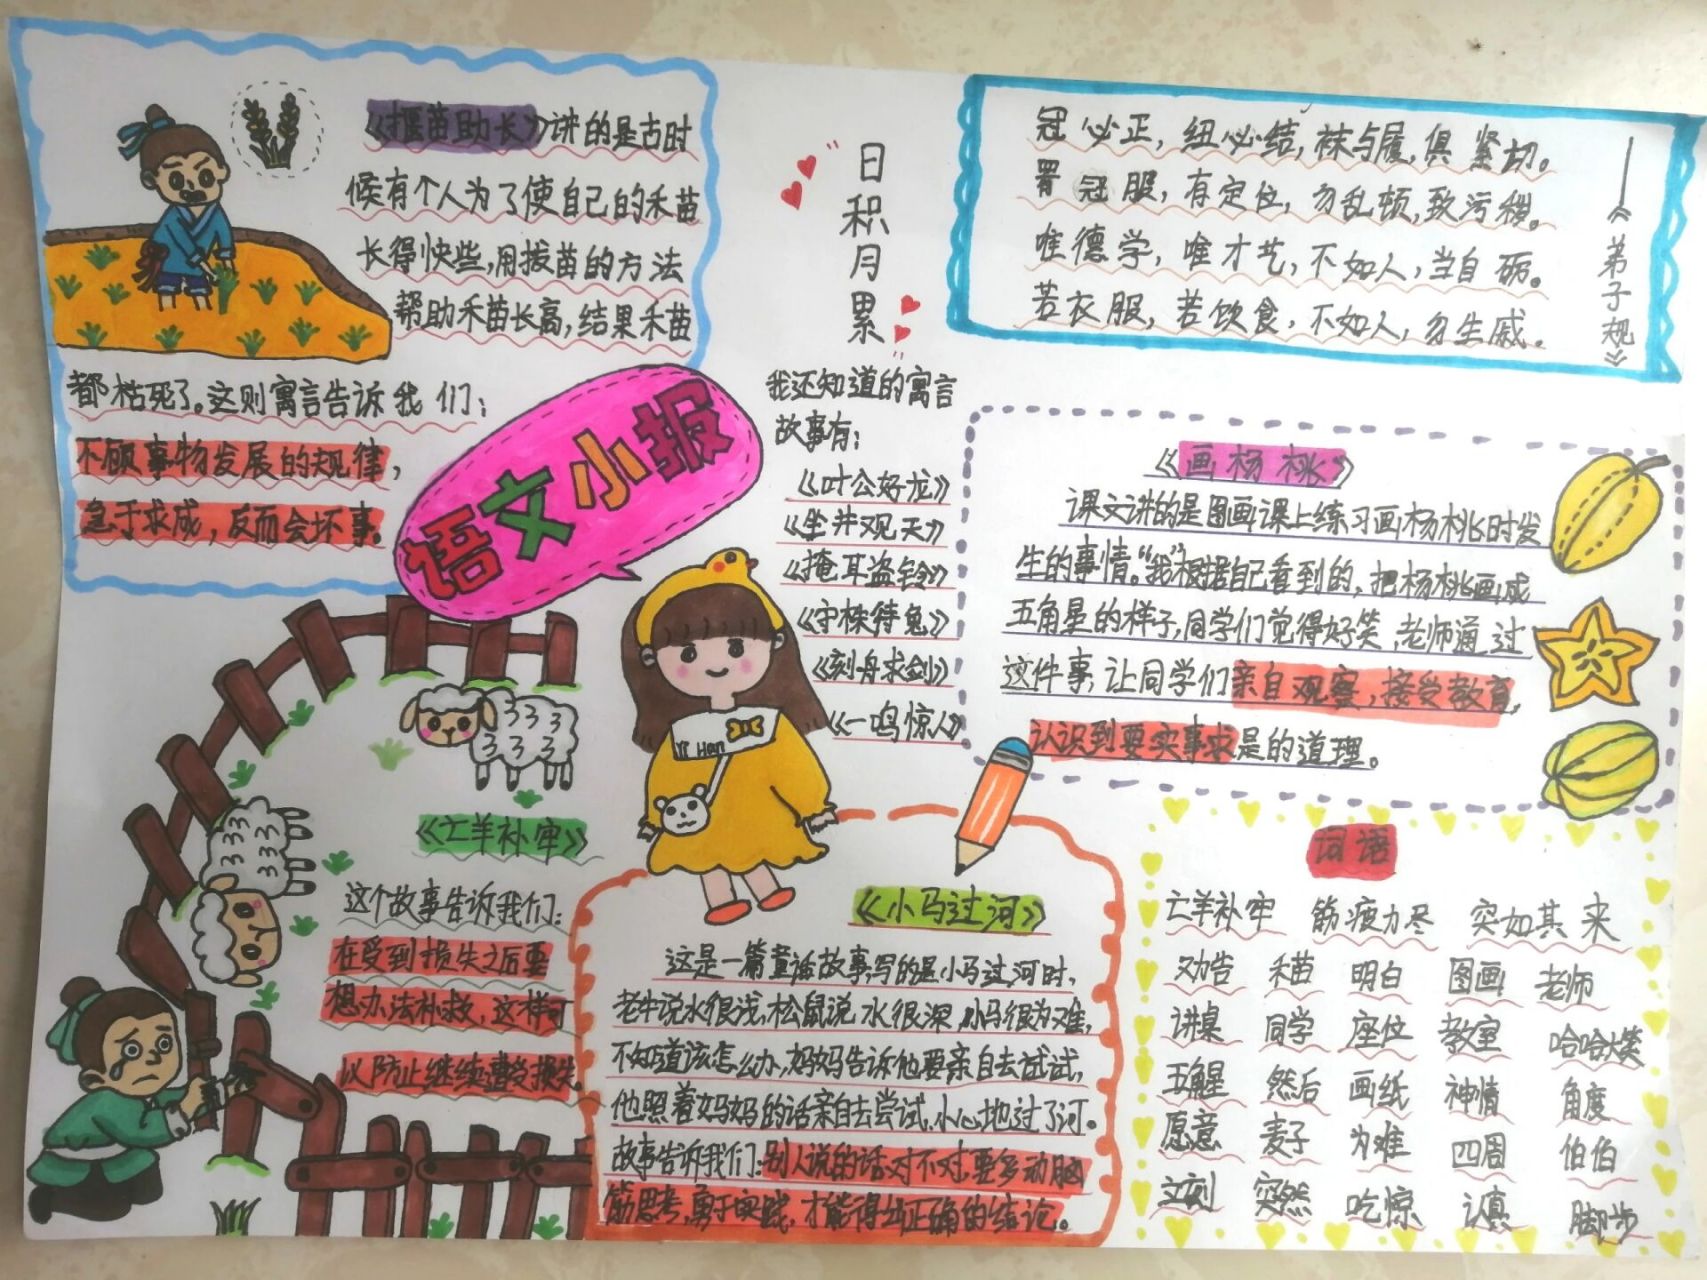 《揠苗助长》讲的是古时
候有个人为了使自己的禾苗
长得快些,用拔苗的方法
帮助禾苗长高,结果禾苗
都枯死了。这则寓言告诉我们:
不顾事物发展的规律,
急于求成,反而会坏事。
语文小报
日积月累
我还知道的寓言
故事有:
《叶公好龙》
《坐井观天》
《掩耳盗铃》
《守株待兔》
《刻舟求剑》
《一鸣惊人》
冠必正,纽必结,袜与履,俱紧切。
置冠服,有定位,勿乱顿,致污秽。
唯德学,唯才艺,不如人,当自砺。
若衣服,若饮食,不如人,勿生戚。
——《弟子规》
《画杨桃》
课文讲的是图画课上练习画杨桃时发
生的事情。“我”根据自己看到的,把杨桃画成
五角星的样子,同学们觉得好笑,老师通过
这件事,让同学们亲自观察,接受教育,
认识到要实事求是的道理。
Yi Han
《亡羊补牢》
这个故事告诉我们:
在受到损失之后要
想办法补救,这样可
以防止继续遭受损失
《小马过河》
这是一篇童话故事,写的是小马过河时,
老牛说水很浅,松鼠说水很深,小马很为难,
不知道该怎么办,妈妈告诉他要亲自去试试,
他照着妈妈的话亲自去尝试,小心地过了河。
故事告诉我们:别人说的话对不对,要多动脑
筋思考,勇于实践,才能得出正确的结论。
词语
亡羊补牢 筋疲力尽 突如其来
劝告 禾苗 明白 图画 老师
讲桌 同学 座位 教室 哈哈大笑
五角星 然后 画纸 神情 角度
愿意 麦子 为难 四周 伯伯
立刻 突然 吃惊 认真 脚步